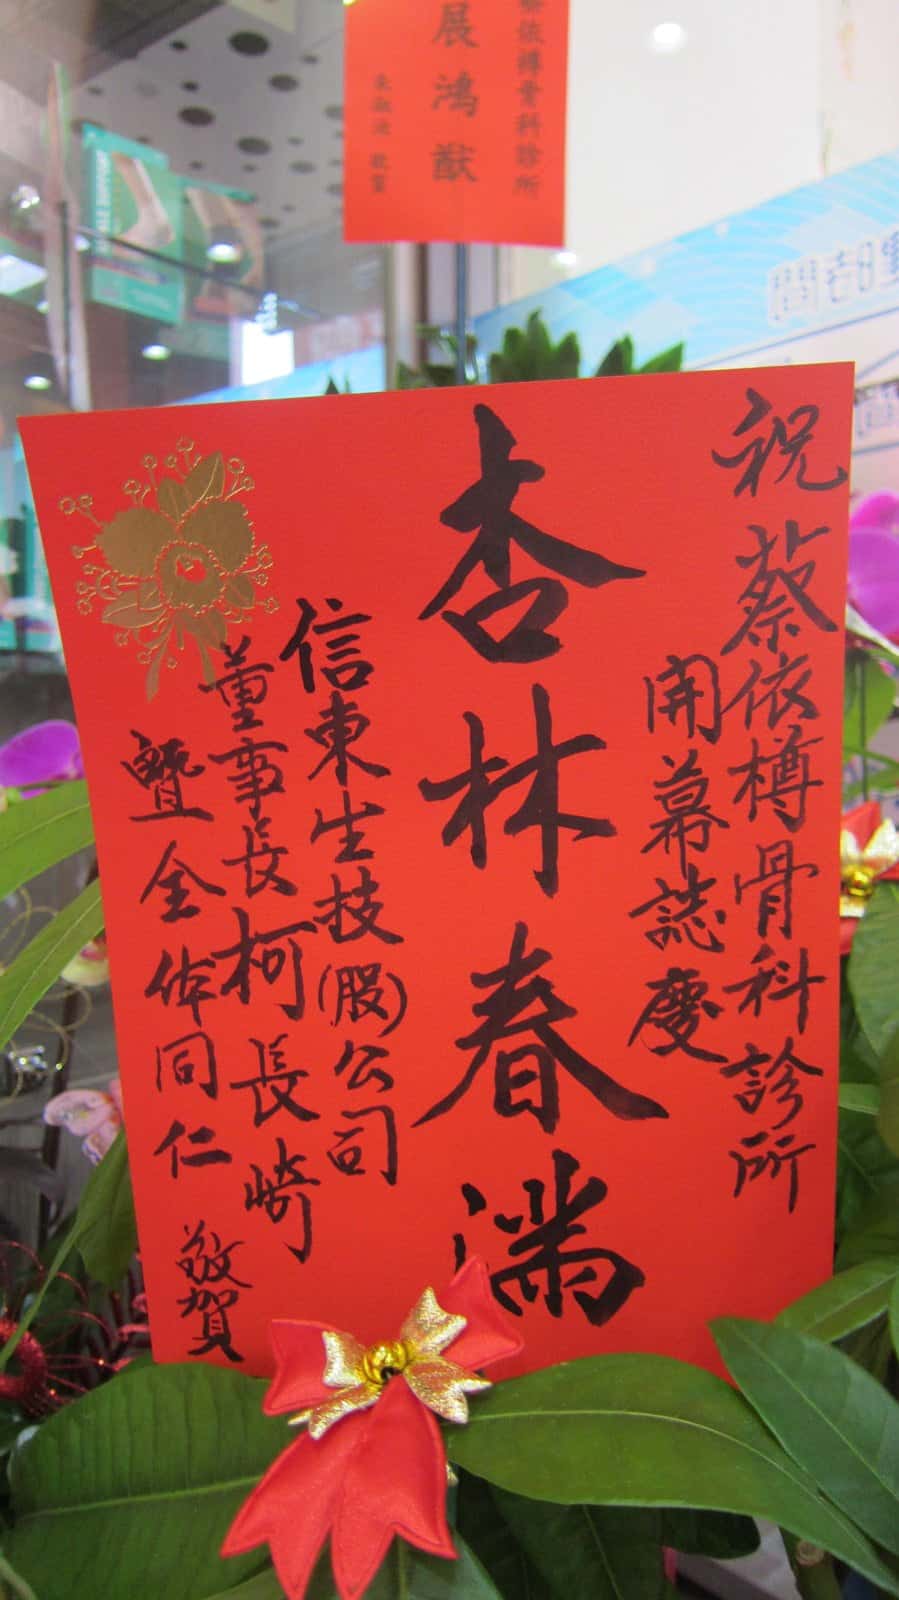 蔡依樽骨科診所
展鴻猷
敬賀
祝蔡依樽骨科診所
開幕誌慶
杏林春滿
信東生技(股)公司
董事長柯長崎
暨全体同仁
敬賀